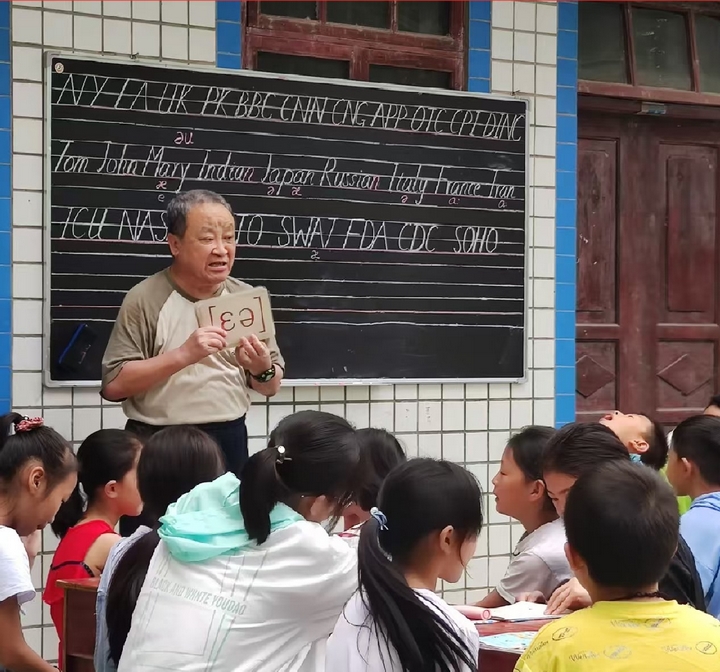 NY LA UK PK BBC CNN CNG APP OTC CPI
əu
Tom John Mary Indian Japan Russian Italy France Iran
ICU NAS TO SWAT FDA CDC SOHO
[ɛə]
BLACK AND WHITE